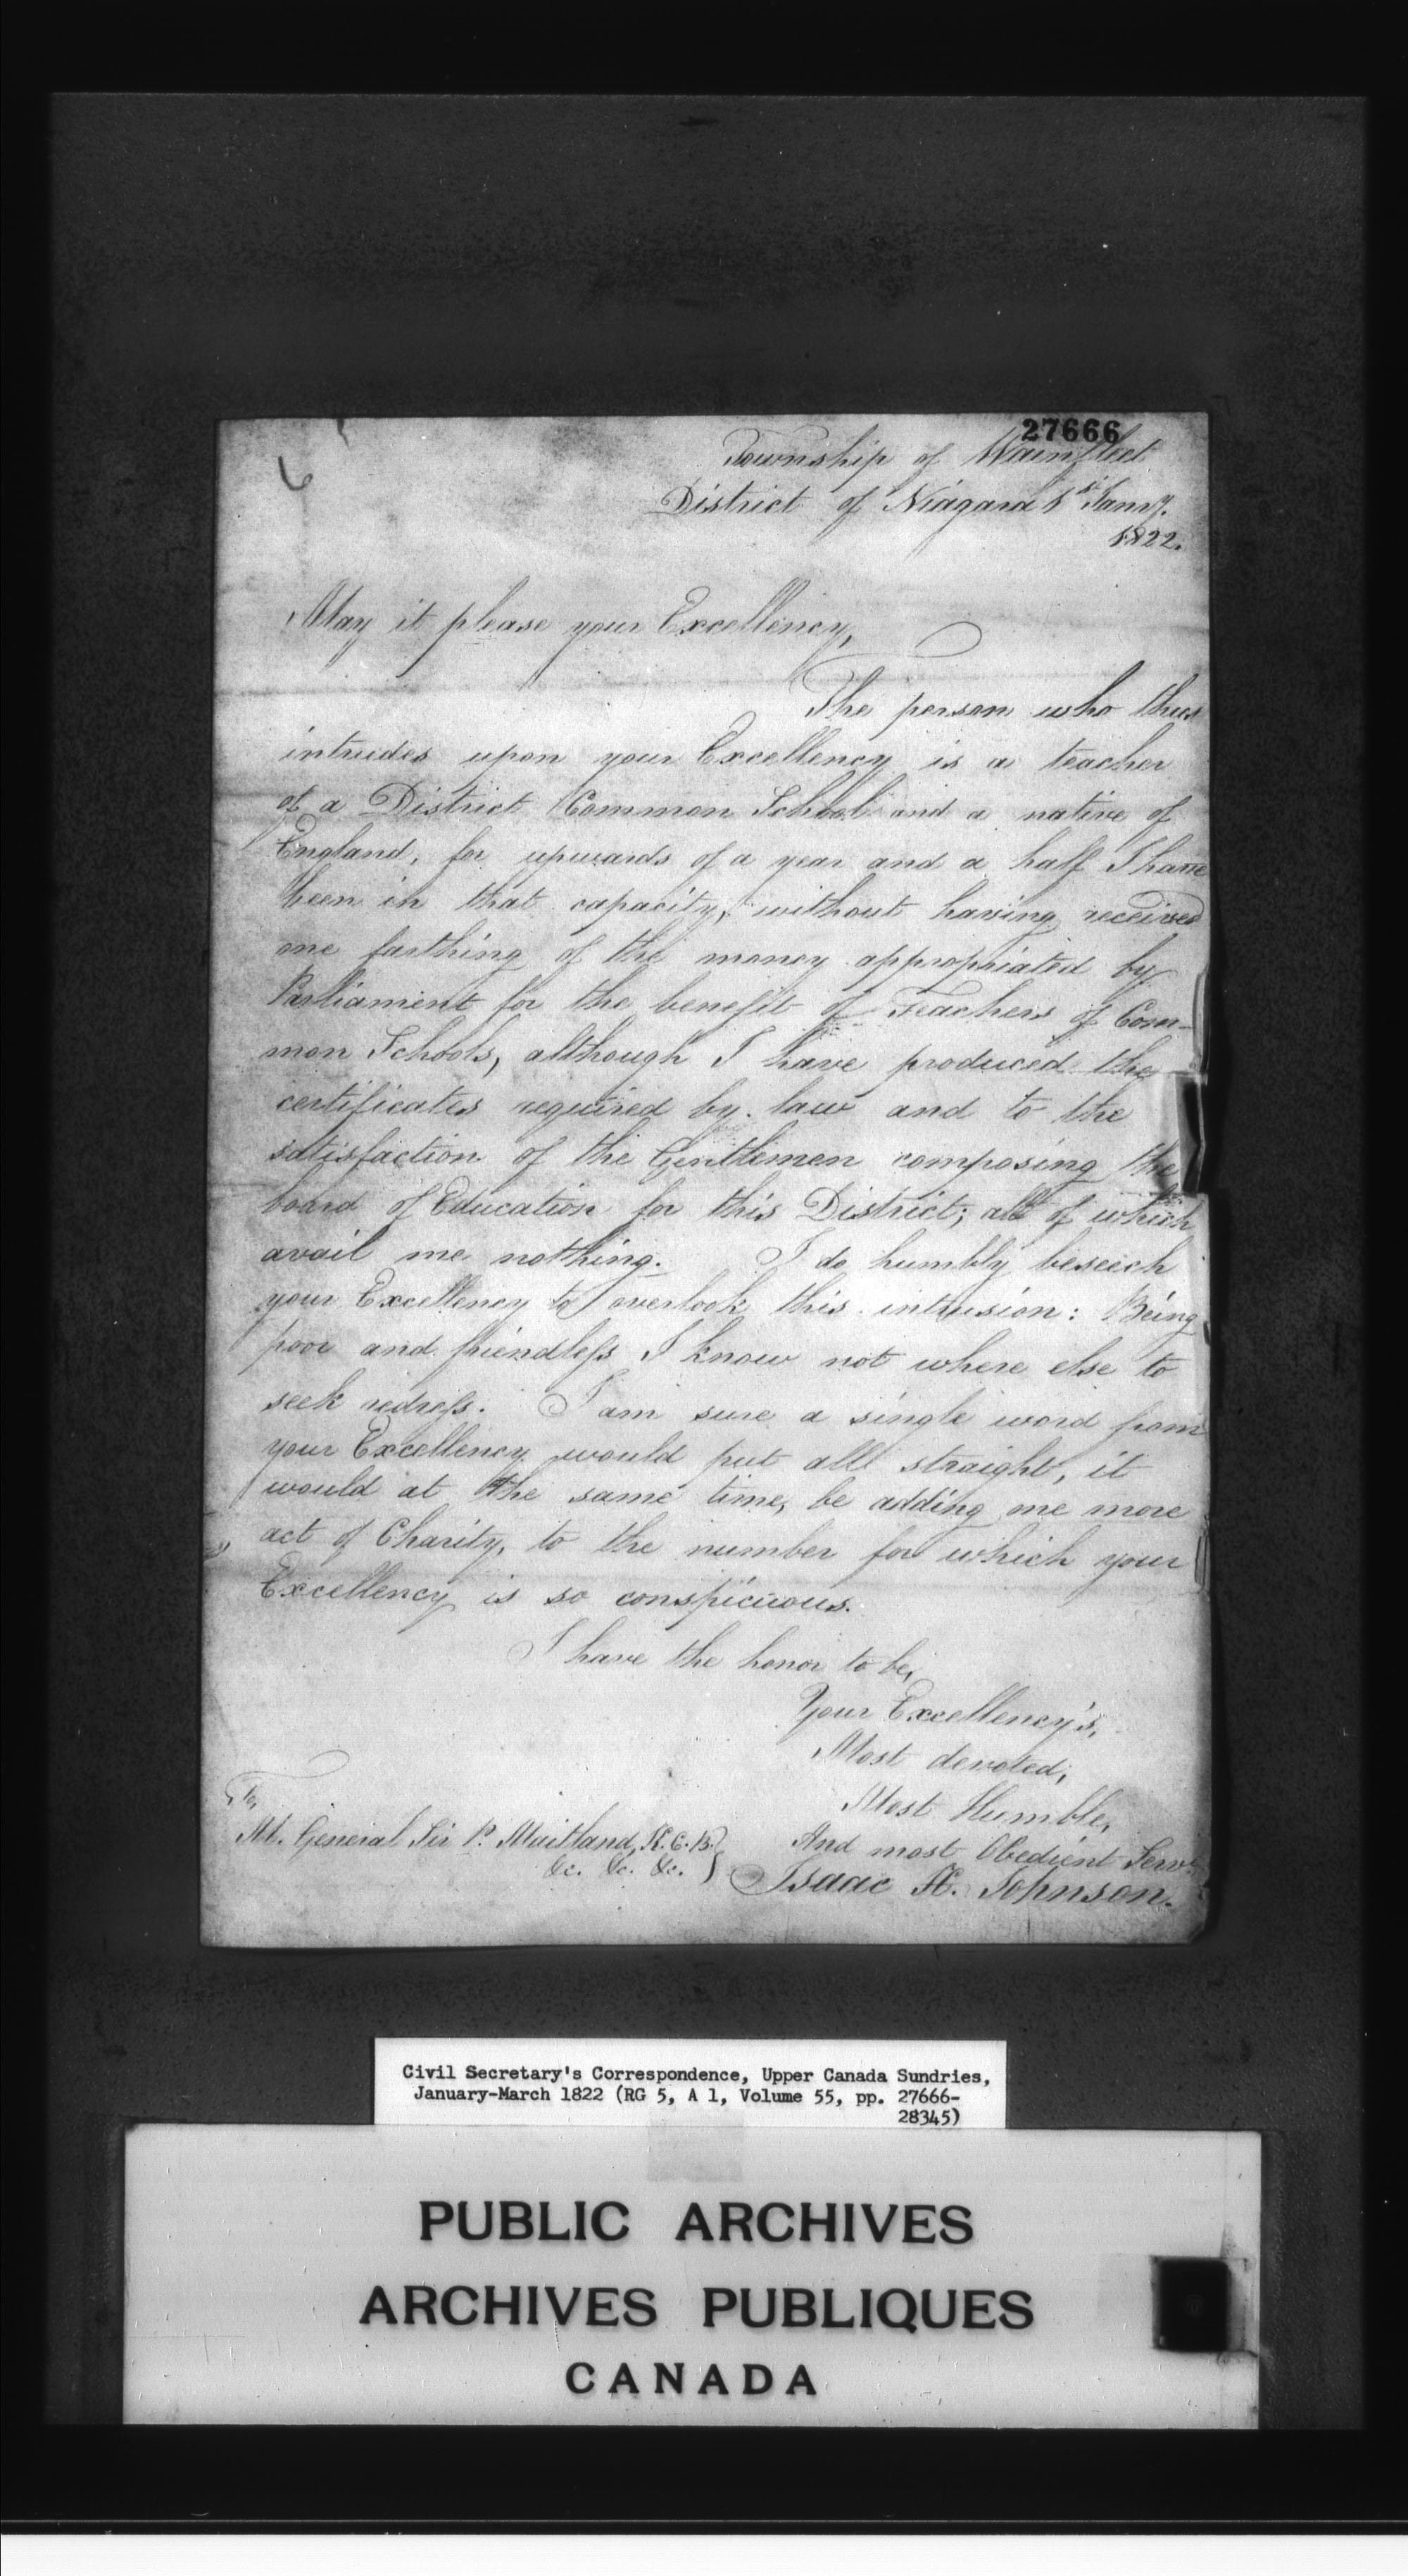 27666
Township of Wainfleet
District of Niagara 1st Jany.
1822.
6
May it please your Excellency,
The person who thus
intrudes upon your Excellency is a teacher
of a District Common School and a native of
England, for upwards of a year and a half I have
been in that capacity, without having received
one farthing of the money appropriated by
Parliament for the benefit of Teachers of Com-
mon Schools, although I have produced the
certificates required by law and to the
satisfaction of the Gentlemen composing the
board of Education for this District; all of which
avail me nothing. I do humbly beseech
your Excellency to overlook this intrusion: Being
poor and friendless I know not where else to
seek redress. I am sure a single word from
your Excellency would put all straight, it
would at the same time, be adding one more
act of Charity, to the number for which your
Excellency is so conspicuous.
I have the honor to be,
Your Excellency's,
Most devoted,
Most Humble,
And most Obedient Servt.
Isaac K. Johnson.
To,
M. General Sir P. Maitland, K.C.B.
&c. &c. &c.
Civil Secretary's Correspondence, Upper Canada Sundries,
January-March 1822 (RG 5, A 1, Volume 55, pp. 27666-
28345)
PUBLIC ARCHIVES
ARCHIVES PUBLIQUES
CANADA